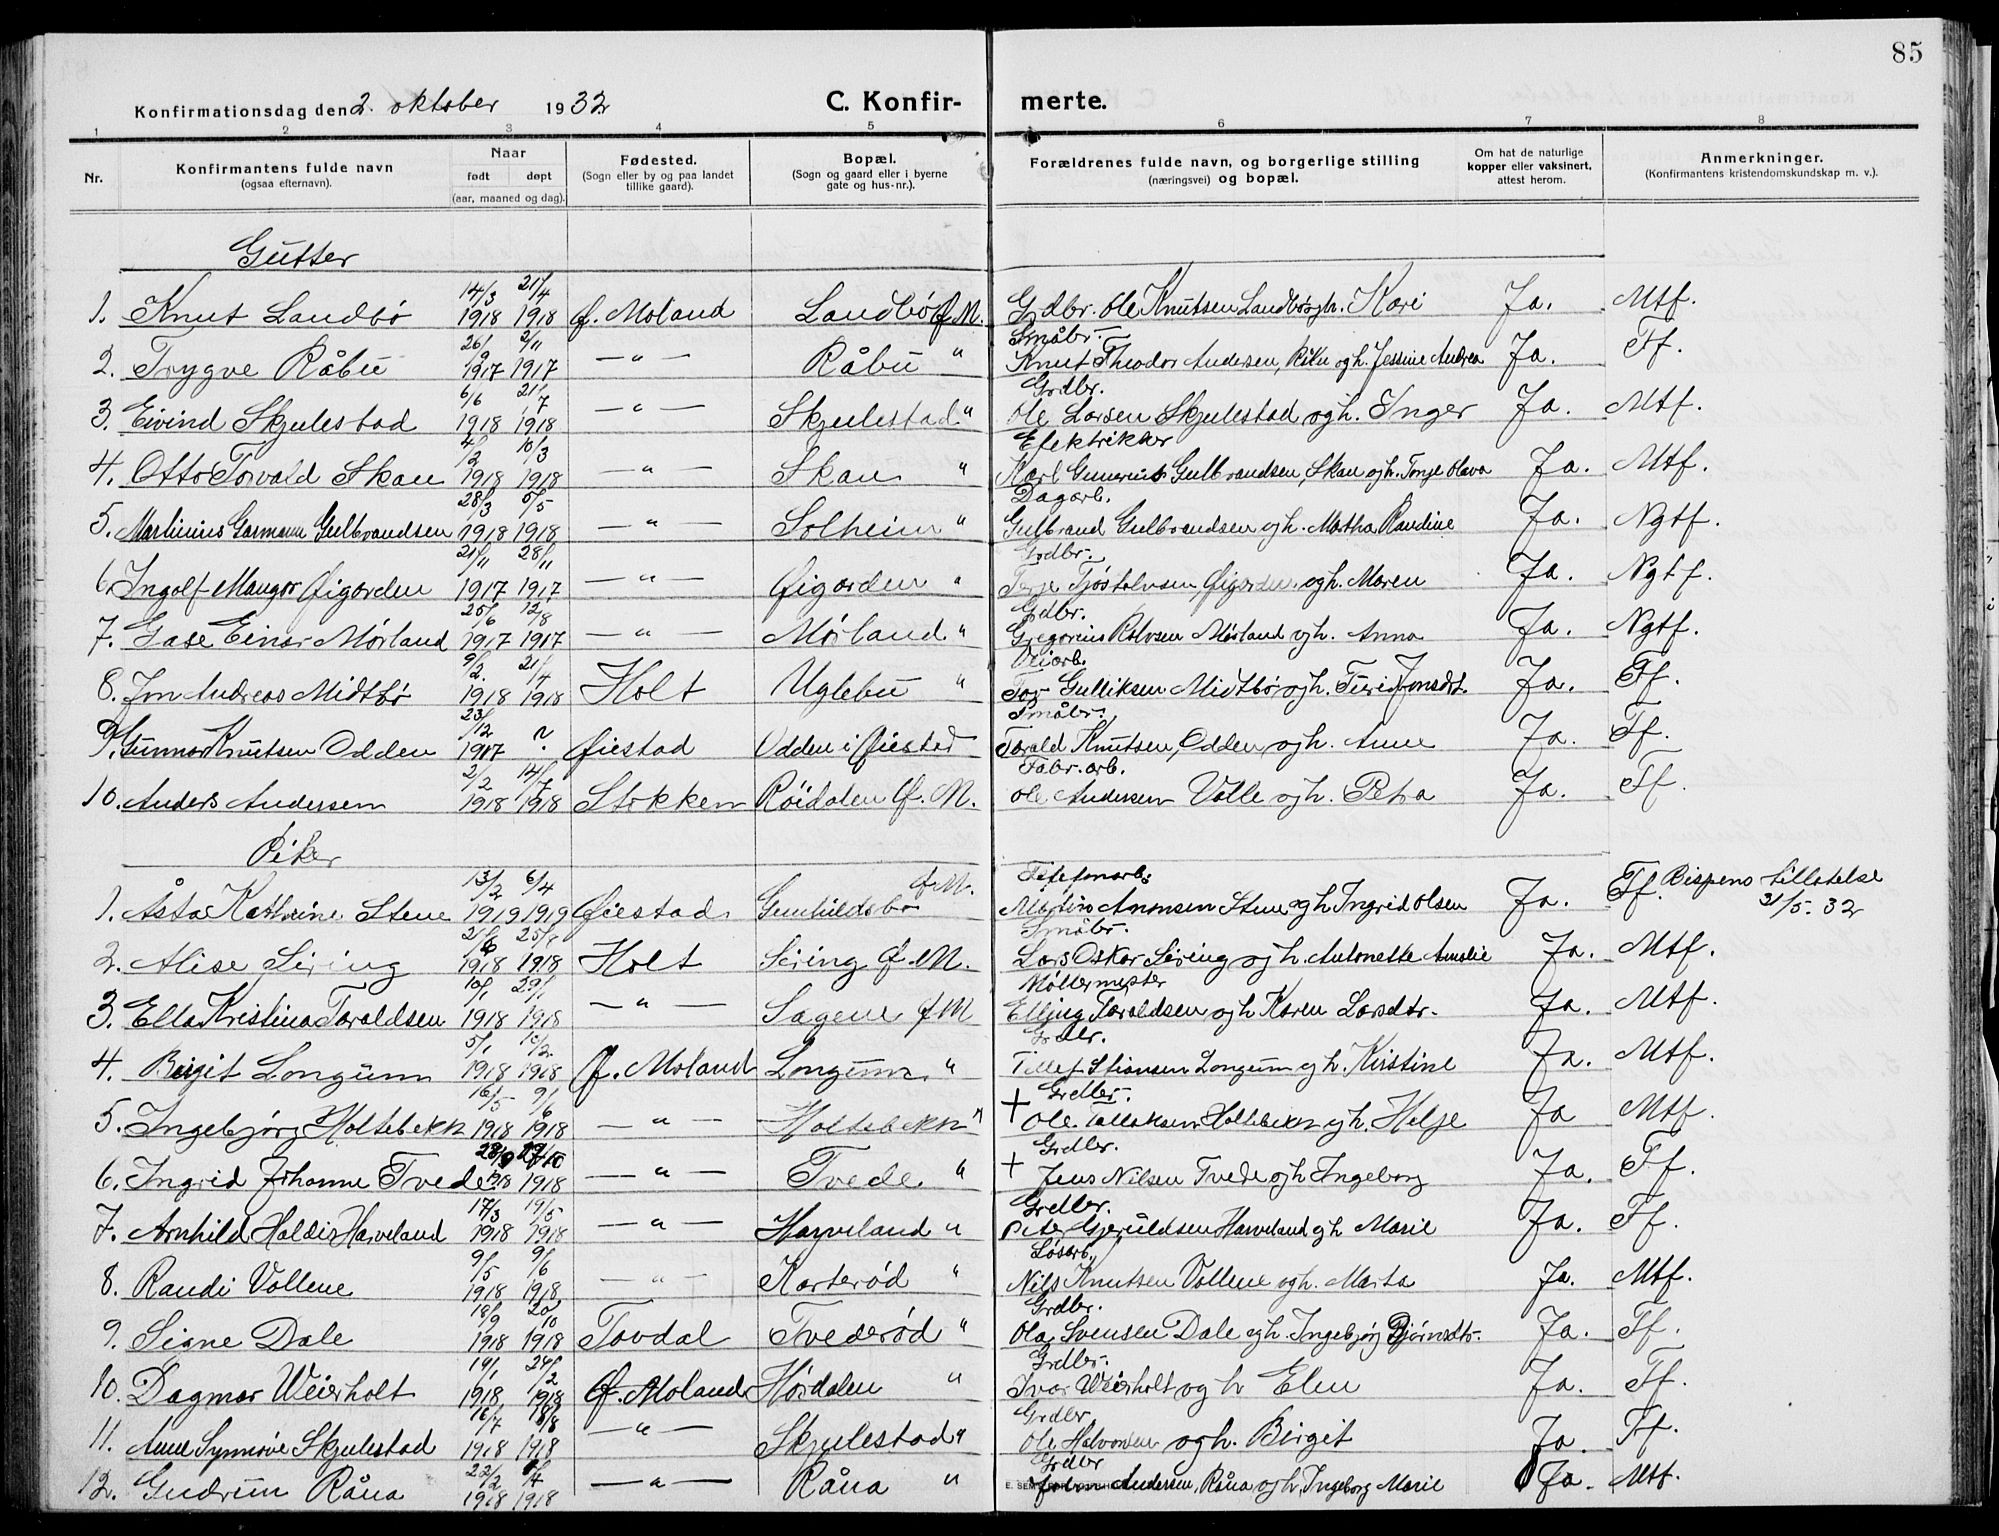 85
Konfirmationsdag den 2. oktober 1932 C. Konfir- merte.
1 2 3 4 5 6 7 8
Nr. Konfirmantens fulde navn (ogsaa efternavn). Naar født døpt (aar, maaned og dag). Fødested. (Sogn eller by og paa landet tillike gaard). Bopæl. (Sogn og gaard eller i byerne gate og hus-nr.). Forældrenes fulde navn, og borgerlige stilling (næringsvei) og bopæl. Om hat de naturlige kopper eller vaksinert, attest herom. Anmerkninger. (Konfirmantens kristendomskundskap m. v.).
Gutter
1. Knut Landbø 14/3 1918 21/4 1918 Ø. Moland Landbø Ø.M. Grdbr. Ole Knutsen Landbø ogh. Kari Ja. Mtf.
2. Trygve Råbu 26/9 1917 2/11 1917 — " — Råbu " Småbr. Knut Theodor Andersen, Råbu ogh. Jessine Andrea Ja. Tf.
3. Eivind Skjulestad 6/6 1918 21/7 1918 — " — Skjulestad " Grdbr. Ole Larsen Skjulestad ogh. Inger Ja. Mtf.
4. Otto Torvald Skau 4/2 1918 10/3 1918 — " — Skau " Elektriker Karl Gunerius Gulbrandsen, Skau ogh. Tonje Olava Ja. Mtf.
5. Martinius Garmann Gulbrandsen 28/3 1918 5/5 1918 — " — Solheim " Dagarb. Gulbrand Gulbrandsen ogh. Martha Randine Ja. Ngtf.
6. Ingolf Mangor Øigarden 21/11 1917 28/11 1917 — " — Øigarden " Grdbr. Terje Tjøstolvsen Øigarden ogh. Maren Ja. Ngtf.
7. Gase Einar Mørland 25/6 1917 12/8 1917 — " — Mørland " Grdbr. Gregorius Rolvsen Mørland ogh. Anna Ja. Ngtf.
8. Jon Andreas Midtbø 9/2 1918 21/4 1918 Holt Uglebu " Veiarb. Tor Gulliksen Midtbø ogh. Turid Jonsdt. Ja. Tf.
9. Gunnar Knutsen Odden 23/12 1917 ? Øiestad Odden i Øiestad Småbr. Torald Knutsen, Odden ogh. Anne Ja. Tf.
10. Anders Andersen 2/2 1918 14/7 1918 Stokken Røidalen Ø. M. Fabr. arb. Ole Andersen Valle ogh. Petra Ja. Tf.
Piker
1. Åsta Kathrine Stene 13/2 1919 6/4 1919 Øiestad Gunhildsbo Ø.M. Telefonarb. Aronsen Stene ogh Ingrid Olsen Ja. Tf. Bispens tillatelse 31/5. 32
2. Alise Sering 2/6 1918 25/8 1918 Holt Sering Ø. M. Småbr. Lars Oskar Sering ogh. Antonette Amalie Ja. Mtf.
3. Ella Kristina Taraldsen 10/1 1918 29/1 1918 — " — Sagene Ø M Møllermester Elling Taraldsen ogh Karen Larsdtr. Ja. Mtf.
4. Birgit Longum 5/1 1918 10/2 1918 Ø. Moland Longum " Grdbr. Tellef Stiansen Longum ogh. Kirstine Ja. Mtf.
5. Ingebjørg Holtebekk 16/5 1918 9/6 1918 — " — Holtebekk " + Grdbr. Ole Tallaksen Holtebekk ogh. Helje Ja Mtf.
6. Ingrid Johanne Tvede 28/9 1918 1918 — " — Tvede " + Grdbr. Jens Nilsen Tvede ogh Ingeborg Ja. Tf.
7. Arnhild Haldis Harveland 17/3 1918 19/5 1918 — " — Harveland " Grdbr. Peter Gjeruldsen Harveland ogh Marie Ja. Tf.
8. Randi Vollene 9/5 1918 9/6 1918 — " — Karterød " Løsarb. Nils Knutsen Vollene ogh. Marta Ja. Mtf.
9. Signe Dale 18/9 1918 20/10 1918 Tovdal Tvederød " Grdbr. Ola Svensen Dale ogh. Ingebjørg Bjørnsdtr. Ja. Tf.
10. Dagmar Weierholt 14/1 1918 24/2 1918 Ø. Moland Hørdalen " Grdbr. Ivar Weierholt ogh Elen Ja. Tf.
11. Anne Synnøve Skjulestad 16/7 1918 18/8 1918 — " — Skjulestad " Grdbr Ole Halvorsen ogh. Birgit Ja. Tf.
12. Gudrun Råna 22/2 1918 1918 — " — Råna " Grdbr Andersen, Råna ogh. Ingeborg Marie Ja. Mtf.